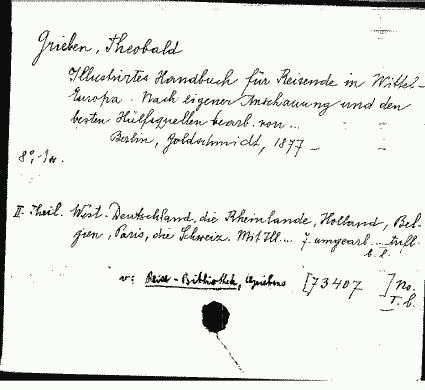 Grieben, Theobald
Illustrirtes Handbuch für Reisende in Mittel-
Europa. Nach eigener Anschauung und den
besten Hülfsquellen bearb. von ...
Berlin, Goldschmidt, 1877 –
8°,
II. Theil. West-Deutschland, die Rheinlande, Holland, Bel-
gien, Paris, die Schweiz. Mit Ill.... 7. umgearb. ... Aufl.
v: Reise-Bibliothek, Griebens [73407 ] No.